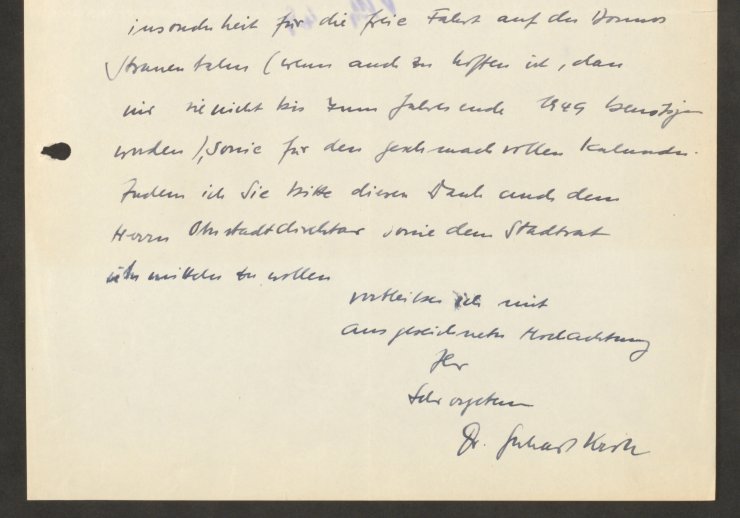 insonderheit für die freie Fahrt auf der
Strassenbahn (wenn auch zu hoffen ist, dass
wir sie nicht bis zum Jahresende 1949 benötigen
werden), sowie für den geschmackvollen Kalender.
Indem ich Sie bitte diesen Dank auch dem
Herrn Oberstadtdirektor sowie dem Stadtrat
übermitteln zu wollen
verbleibe ich mit
ausgezeichneter Hochachtung
Ihr
Sehr ergebener
Dr. Gerhart